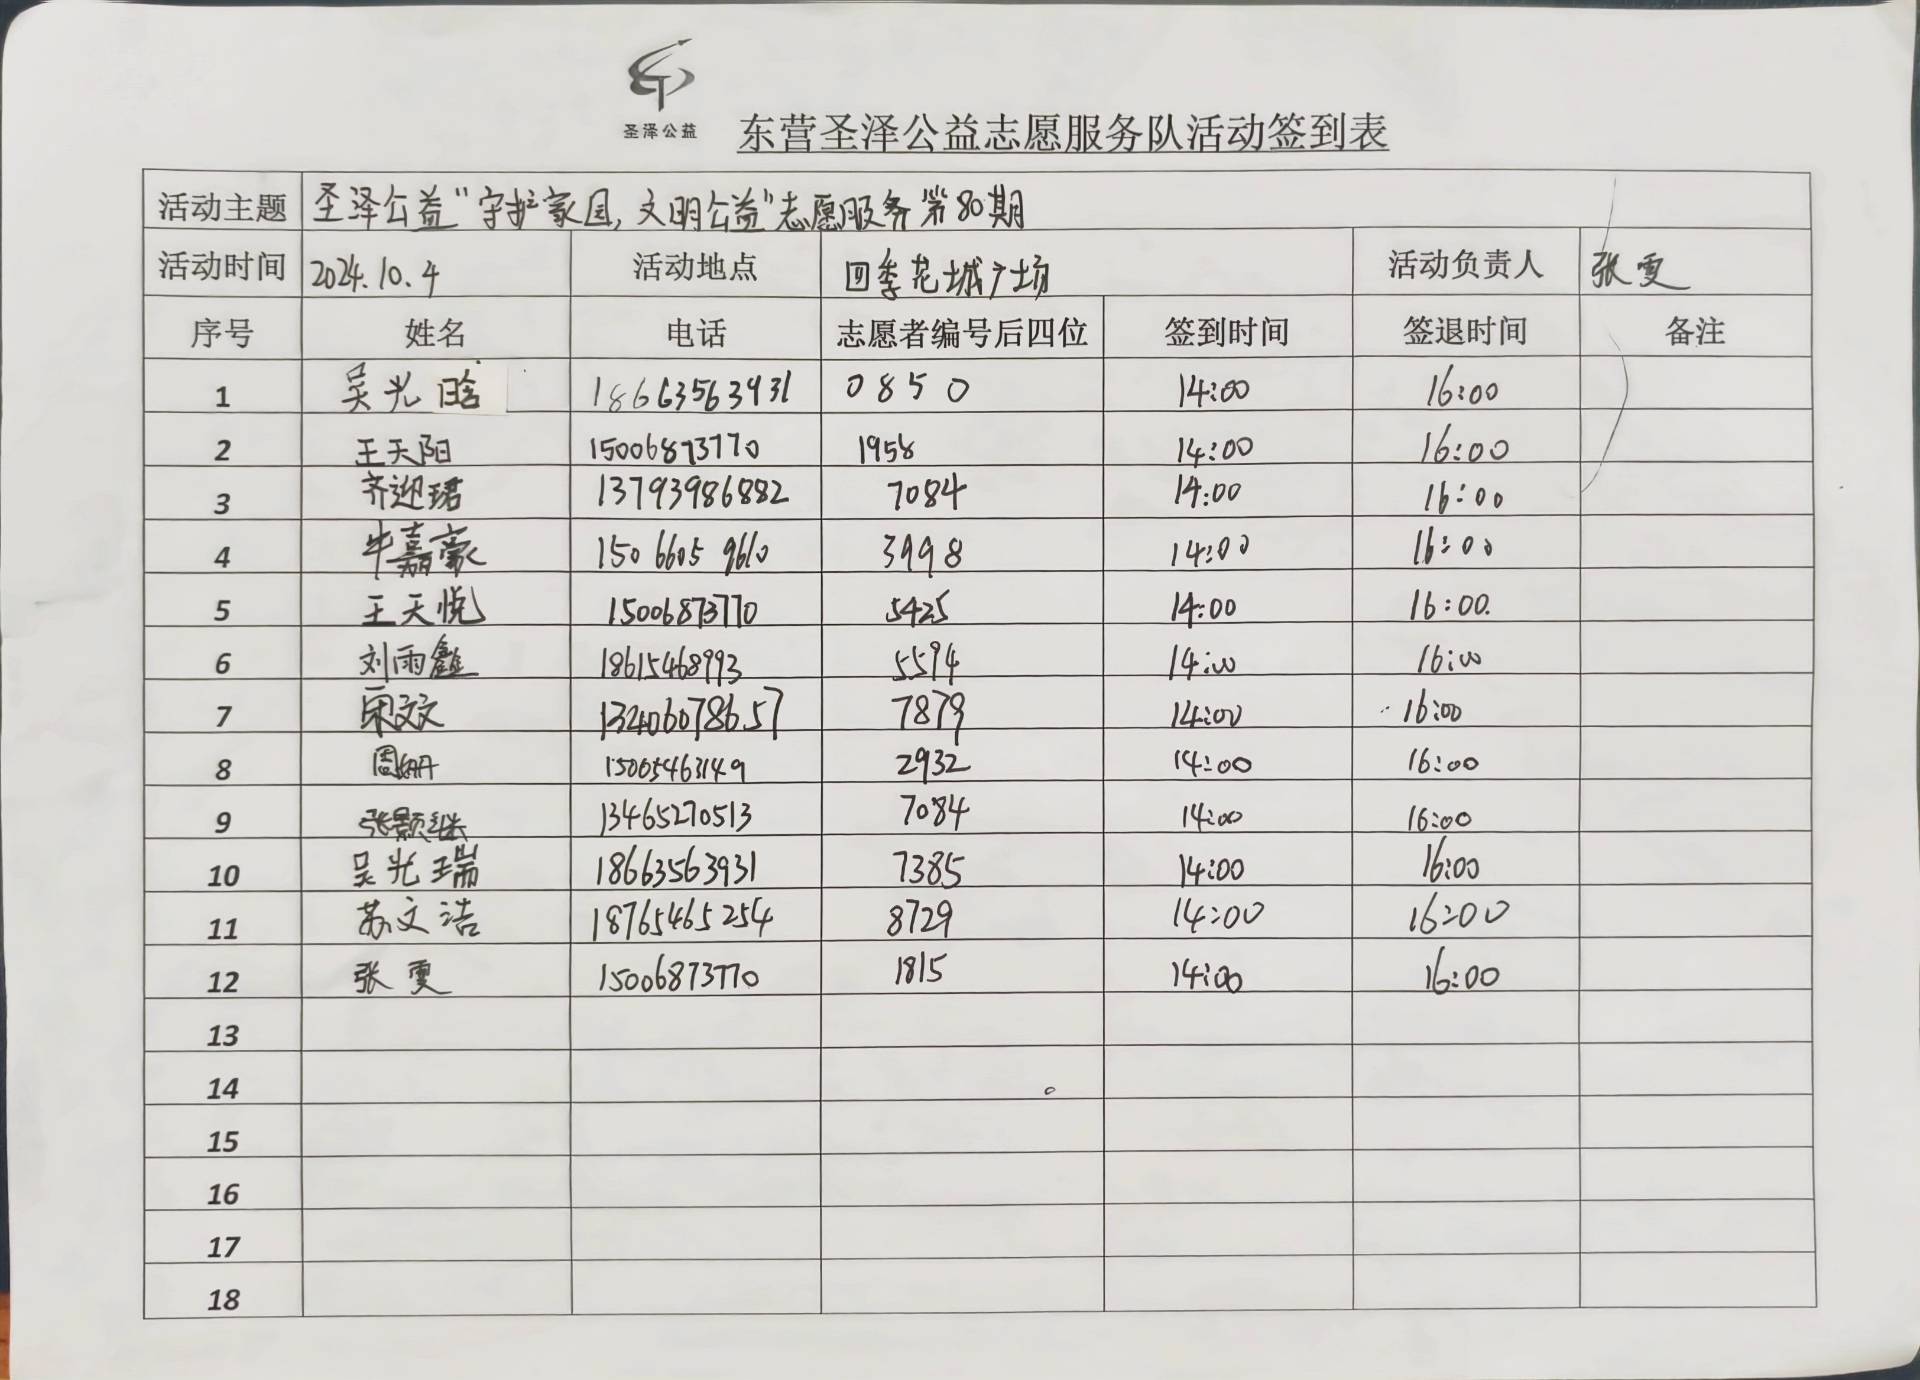 圣泽公益
东营圣泽公益志愿服务队活动签到表
活动主题 圣泽公益"守护家园,文明公益"志愿服务第80期
活动时间 2024.10.4 活动地点 四季花城广场 活动负责人 张雯
序号 姓名 电话 志愿者编号后四位 签到时间 签退时间 备注
1 吴光晗 18663563931 0850 14:00 16:00
2 王天阳 15006873770 1958 14:00 16:00
3 齐迎珺 13793986882 7084 14:00 16:00
4 牛嘉豪 150 6605 9610 3998 14:00 16:00
5 王天悦 15006873770 5425 14:00 16:00.
6 刘雨鑫 18615468993 5594 14:00 16:00
7 宋文文 13406078657 7879 14:00 16:00
8 周姗 15005463149 2932 14:00 16:00
9 张颢继 13465270513 7084 14:00 16:00
10 吴光瑞 18663563931 7385 14:00 16:00
11 苏文浩 18765465254 8729 14:00 16:00
12 张雯 15006873770 1815 14:00 16:00
13
14
15
16
17
18